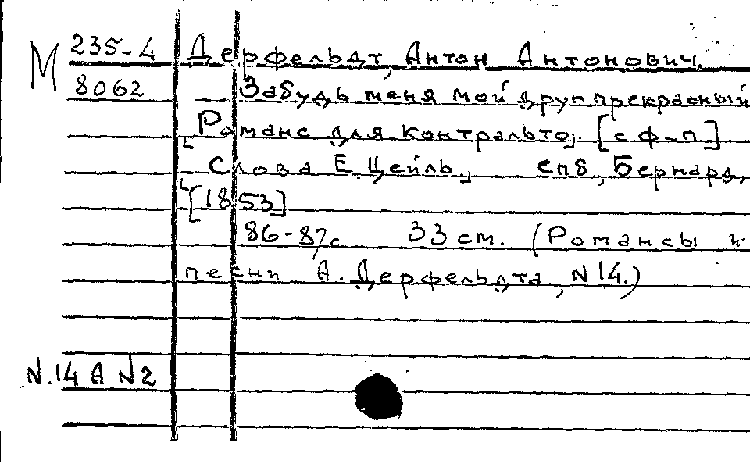 М 235-4 Дерфельдт, Антон Антонович.
8062 Забудь меня мой друг прекрасный
Романс для контральто, [с ф-п]
Слова Е. Цейль, СПб, Бернард,
[1853]
86-87с 33 см. (Романсы и
песни А. Дерфельдта, N 14.)
N.14 А N2